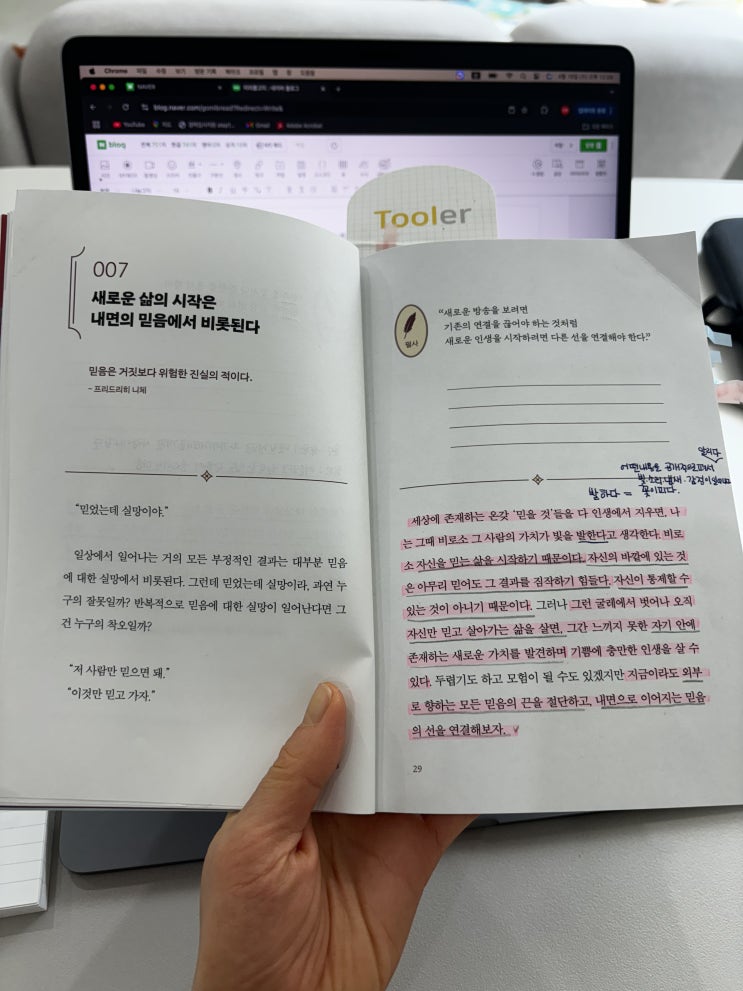 Chrome 파일
NAVER
blog.naver.com/gomibread?Redirect=Write&
YouTube
Gmail
Adobe Acrobat
blog
Tooler
007
새로운 삶의 시작은
내면의 믿음에서 비롯된다
믿음은 거짓보다 위험한 진실의 적이다.
- 프리드리히 니체
“믿었는데 실망이야.”
일상에서 일어나는 거의 모든 부정적인 결과는 대부분 믿음
에 대한 실망에서 비롯된다. 그런데 믿었는데 실망이라, 과연 누
구의 잘못일까? 반복적으로 믿음에 대한 실망이 일어난다면 그
건 누구의 착오일까?
“저 사람만 믿으면 돼.”
“이것만 믿고 가자.”
필사
“새로운 방송을 보려면
기존의 연결을 끊어야 하는 것처럼
새로운 인생을 시작하려면 다른 선을 연결해야 한다.”
알리다
어떤 내용을 공개적으로 펴서
발하다 = 꽃이 피다.
세상에 존재하는 온갖 ‘믿을 것’들을 다 인생에서 지우면, 나
는 그때 비로소 그 사람의 가치가 빛을 발한다고 생각한다. 비로
소 자신을 믿는 삶을 시작하기 때문이다. 자신의 바깥에 있는 것
은 아무리 믿어도 그 결과를 짐작하기 힘들다. 자신이 통제할 수
있는 것이 아니기 때문이다. 그러나 그런 굴레에서 벗어나 오직
자신만 믿고 살아가는 삶을 살면, 그간 느끼지 못한 자기 안에
존재하는 새로운 가치를 발견하며 기쁨에 충만한 인생을 살 수
있다. 두렵기도 하고 모험이 될 수도 있겠지만 지금이라도 외부
로 향하는 모든 믿음의 끈을 절단하고, 내면으로 이어지는 믿음
의 선을 연결해보자.
29